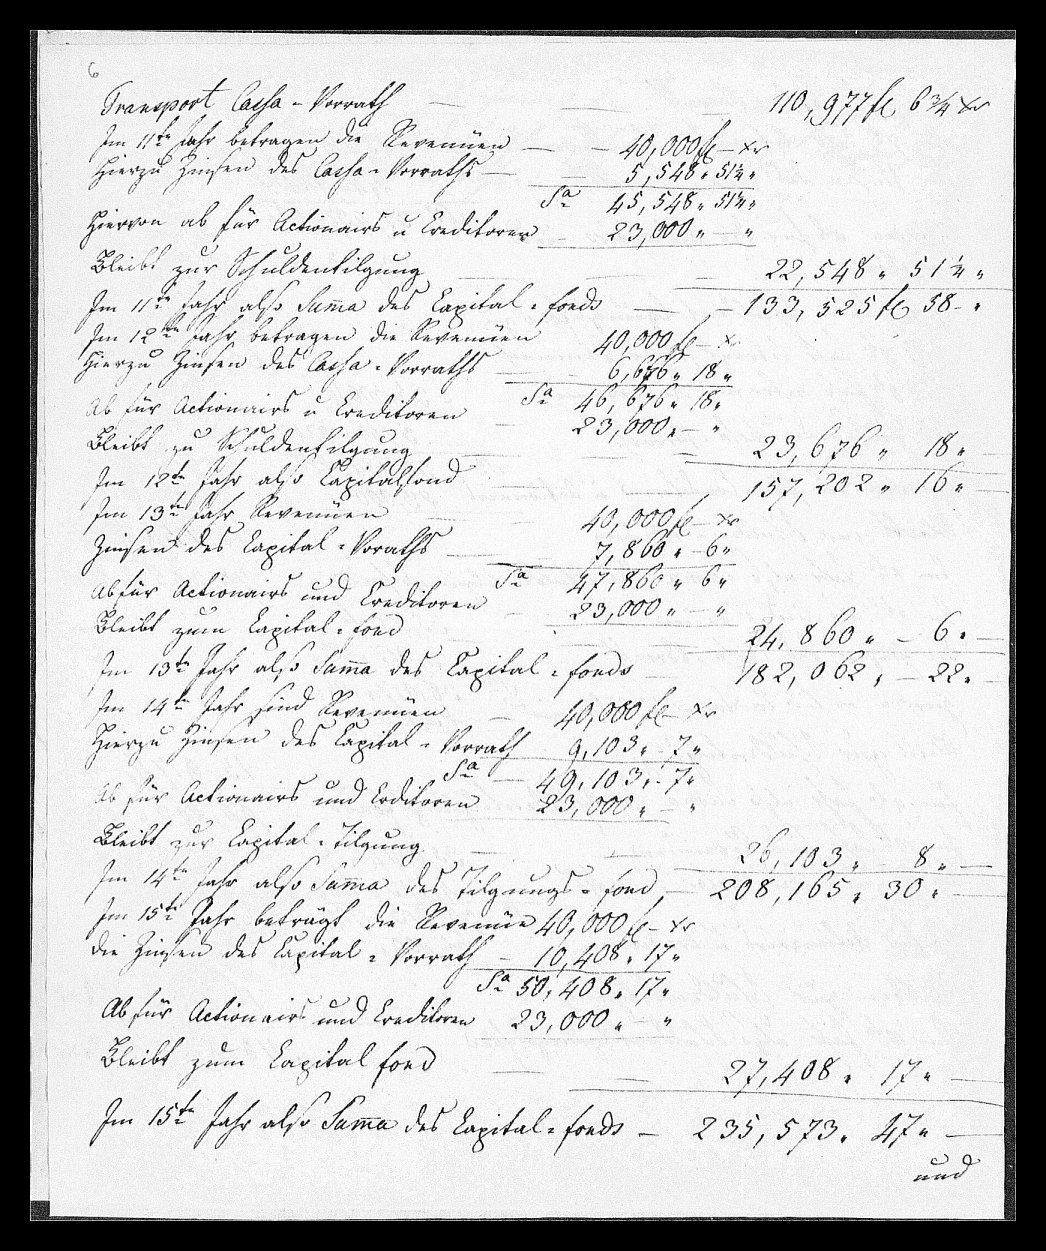 6
Transport Cassa-Vorrath — — 110,977 fl 6 3/4 xr
Im 11te Jahr betragen die Revenüen — — 40,000 fl — xr
Hierzu Zinsen des Cassa-Vorraths — — 5,548 " 51 1/4 "
Sa 45,548 " 51 1/4 "
Hiervon ab für Actionairs u Creditoren — 23,000 " — "
Bleibt zur Schuldentilgung — — — 22,548 " 51 1/4 "
Im 11te Jahr also Suma des Capital-fonds — — 133,525 fl 58 - "
Im 12te Jahr betragen die Revenüen 40,000 fl — xr
Hierzu Zinsen des Cassa-Vorraths — — 6,676 " 18 "
Sa 46,676 " 18 "
Ab für Actionairs u Creditoren — 23,000 " — "
Bleibt zu Schuldentilgung — — — 23,676 " 18 " —
Im 12te Jahr also Capitalfond — — 157,202 " 16 " —
Im 13te Jahr Revenüen — — 40,000 fl — xr
Zinsen des Capital-Voraths — — 7,860 " — 6 "
Sa 47,860 " 6 "
Ab für Actionairs und Creditoren — 23,000 " — "
Bleibt zum Capital-fond — — 24,860 " — 6 " —
Im 13te Jahr also Suma des Capital-fonds — 182,062 " — 22 " —
Im 14te Jahr sind Revenüen — 40,000 fl — xr
Hierzu Zinsen des Capital-Vorrath 9,103 " - 7 "
Sa — 49,103 " - 7 "
Ab für Actionairs und Crditoren 23,000 " — "
Bleibt zur Capital-Tilgung — — — 26,103 " — 8 " —
Im 14te Jahr also Suma des Tilgungs-fond — 208,165 " 30 " —
Im 15te Jahr beträgt die Revenüe 40,000 fl — xr
die Zinsen des Capital-Vorrath — 10,408 " 17 "
Sa 50,408 " 17 "
Ab für Actionairs und Creditoren 23,000 " — "
Bleibt zum Capital fond — — — 27,408 " 17 " —
Im 15te Jahr also Suma des Capital-fonds — 235,573 " 47 " —
und